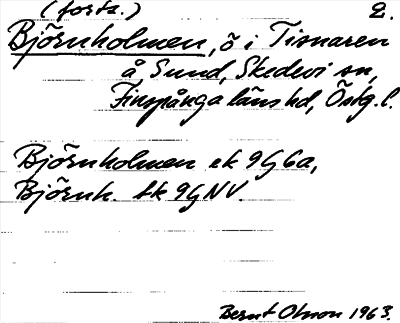 (forts.) 2.
Björnholmen, ö i Tisnaren
å Sund, Skedevi sn,
Finspånga läns hd, Östg. l.
Björnholmen ek 9G6a,
Björnh. tk 9GNV.
Bernt Olsson 1963.